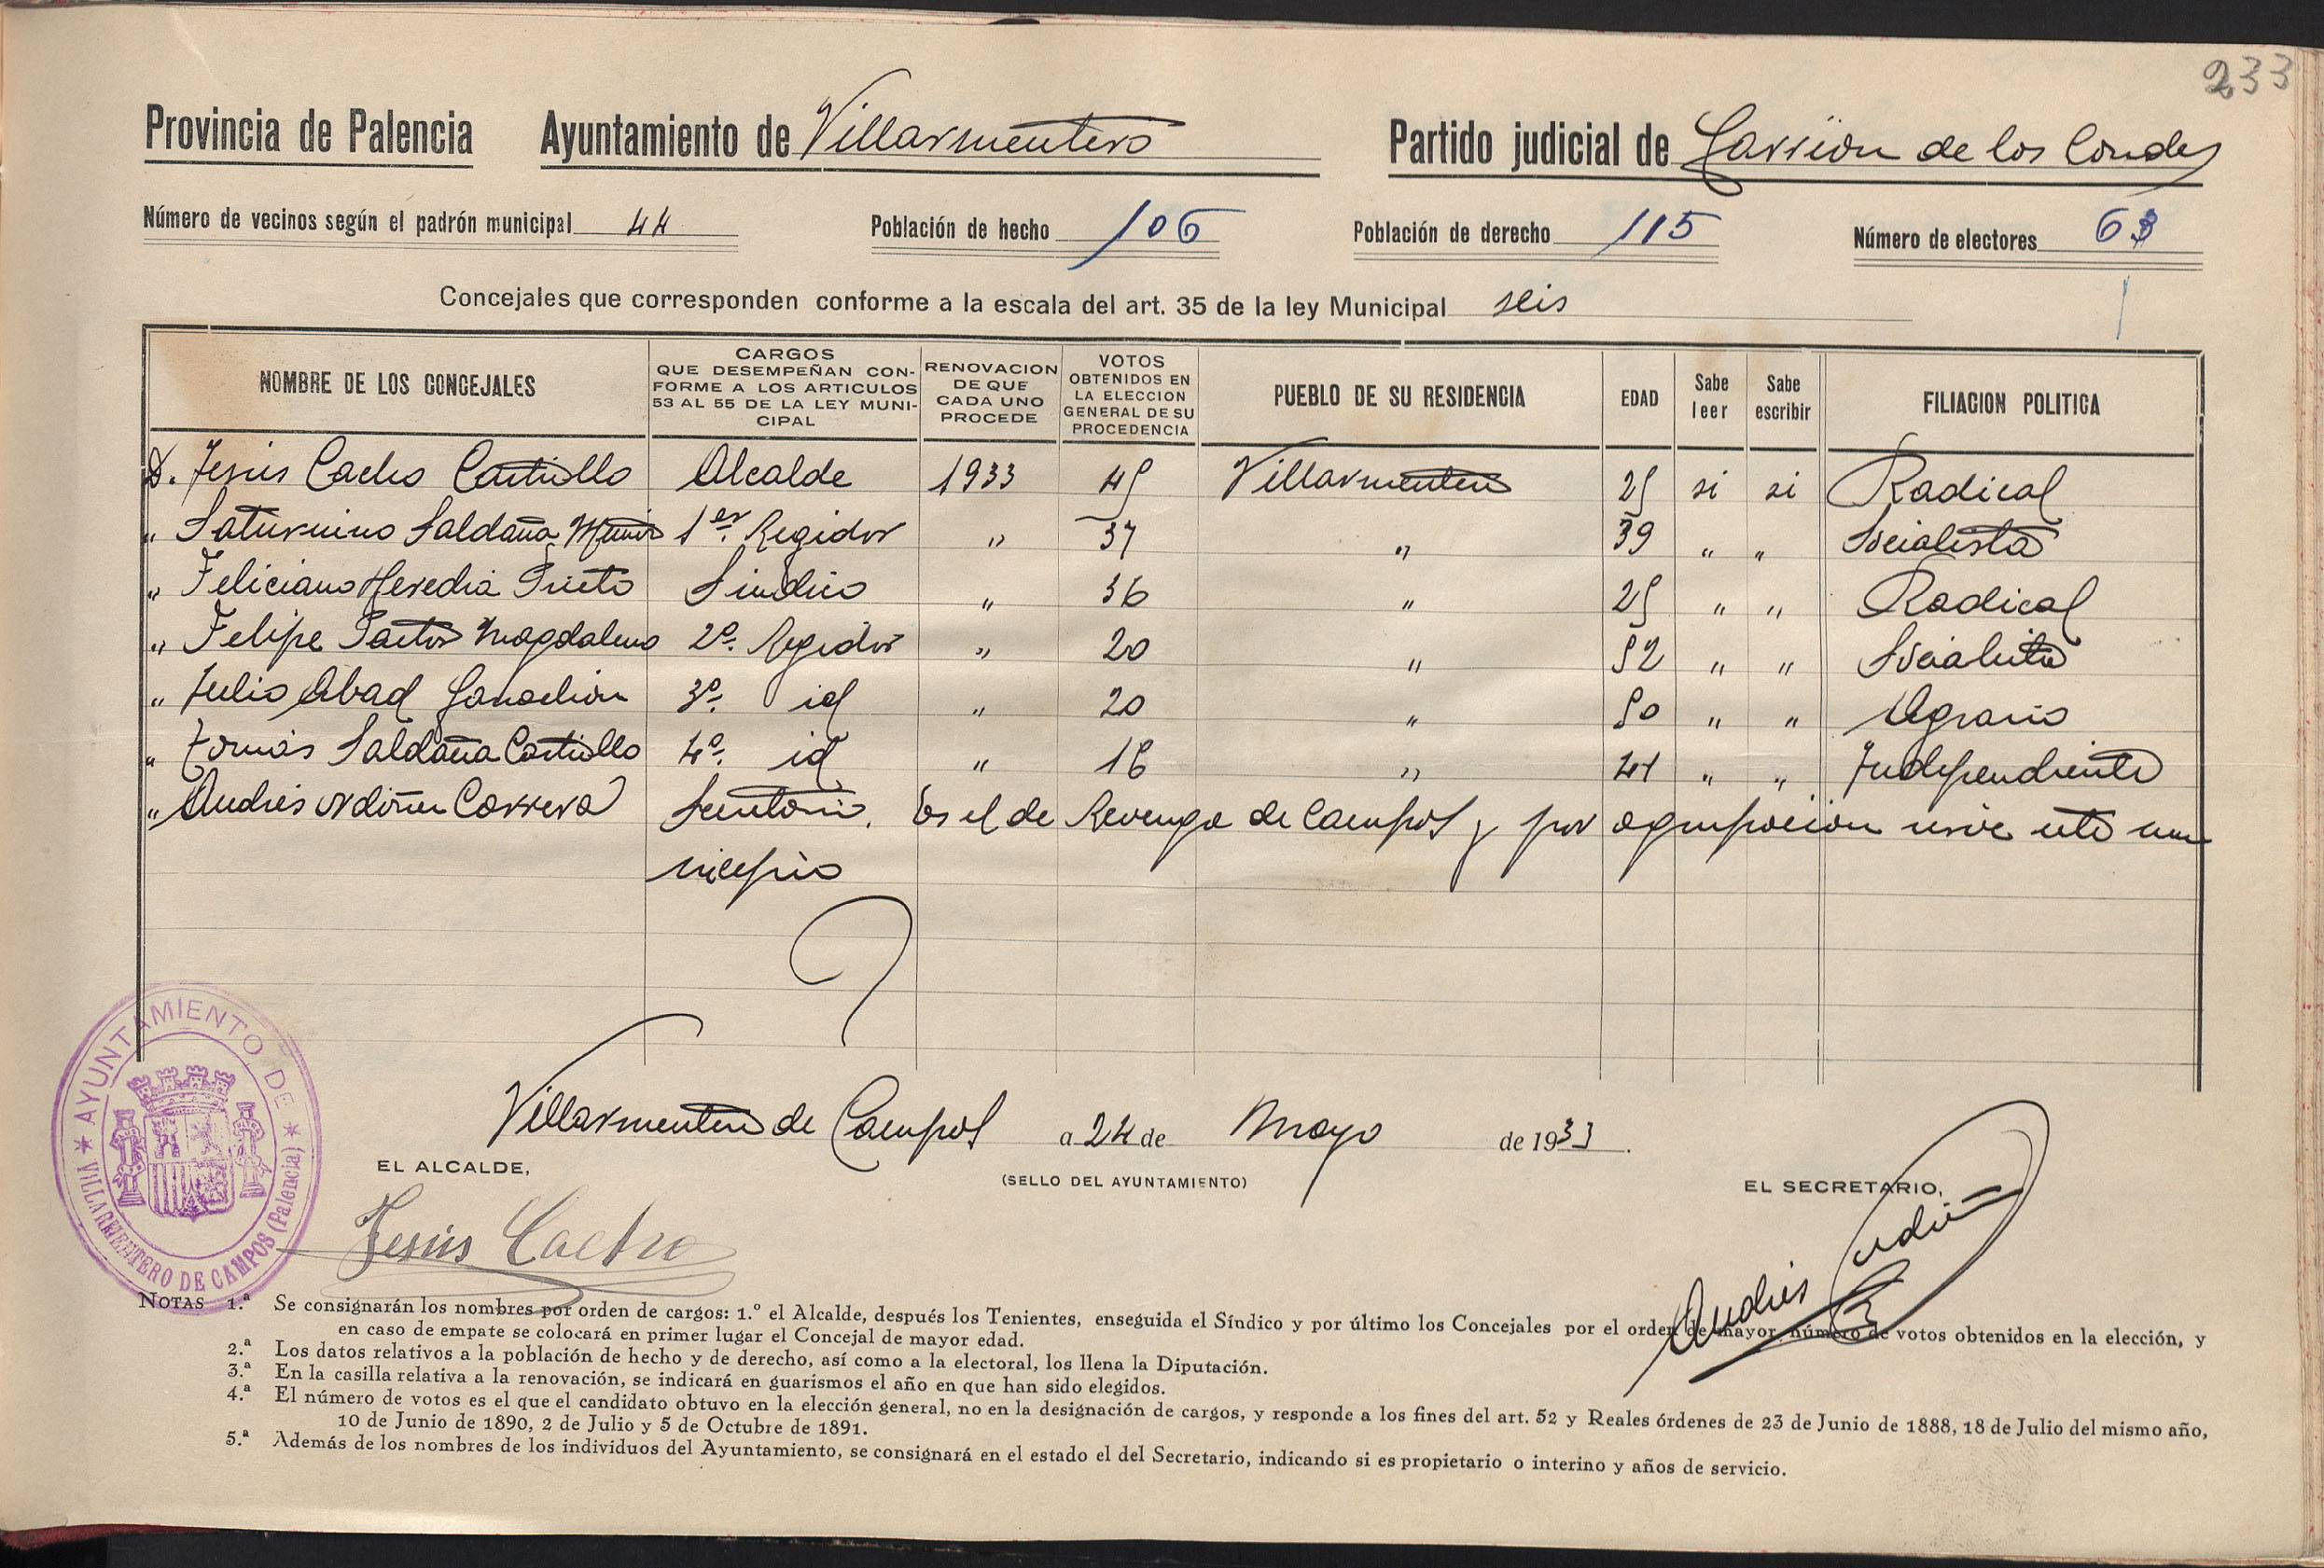 233
Provincia de Palencia Ayuntamiento de Villarmentero Partido judicial de Carrión de los Condes
Número de vecinos según el padrón municipal 44 Población de hecho 106 Población de derecho 115 Número de electores 63
Concejales que corresponden conforme a la escala del art. 35 de la ley Municipal seis
NOMBRE DE LOS CONCEJALES CARGOS QUE DESEMPEÑAN CONFORME A LOS ARTICULOS 53 AL 55 DE LA LEY MUNICIPAL RENOVACION DE QUE CADA UNO PROCEDE VOTOS OBTENIDOS EN LA ELECCION GENERAL DE SU PROCEDENCIA PUEBLO DE SU RESIDENCIA EDAD Sabe leer Sabe escribir FILIACION POLITICA
D. Jesús Cacho Castrillo Alcalde 1933 45 Villarmentero 25 si si Radical
" Saturnino Saldaña 1er. Regidor " 37 " 39 " " Socialista
" Feliciano Heredia Prieto Sindico " 36 " 25 " " Radical
" Felipe Pastor Magdaleno 2º. Regidor " 20 " 52 " " Socialista
" Julio Abad 3º. id " 20 " 50 " " Agrario
" Tomás Saldaña Castrillo 4º. id " 16 " 41 " " Independiente
" Andrés Carrera Secretario. Es el de Revenga de Campos y por agrupación sirve este mu
nicipio
Villarmentero de Campos a 24 de Mayo de 1933.
EL ALCALDE,
(SELLO DEL AYUNTAMIENTO)
EL SECRETARIO,
Jesús Cacho
Andrés
AYUNTAMIENTO DE
VILLARMENTERO DE CAMPOS (Palencia)
NOTAS 1.ª Se consignarán los nombres por orden de cargos: 1.º el Alcalde, después los Tenientes, enseguida el Síndico y por último los Concejales por el orden de mayor número de votos obtenidos en la elección, y
en caso de empate se colocará en primer lugar el Concejal de mayor edad.
2.ª Los datos relativos a la población de hecho y de derecho, así como a la electoral, los llena la Diputación.
3.ª En la casilla relativa a la renovación, se indicará en guarismos el año en que han sido elegidos.
4.ª El número de votos es el que el candidato obtuvo en la elección general, no en la designación de cargos, y responde a los fines del art. 52 y Reales órdenes de 23 de Junio de 1888, 18 de Julio del mismo año,
10 de Junio de 1890, 2 de Julio y 5 de Octubre de 1891.
5.ª Además de los nombres de los individuos del Ayuntamiento, se consignará en el estado el del Secretario, indicando si es propietario o interino y años de servicio.